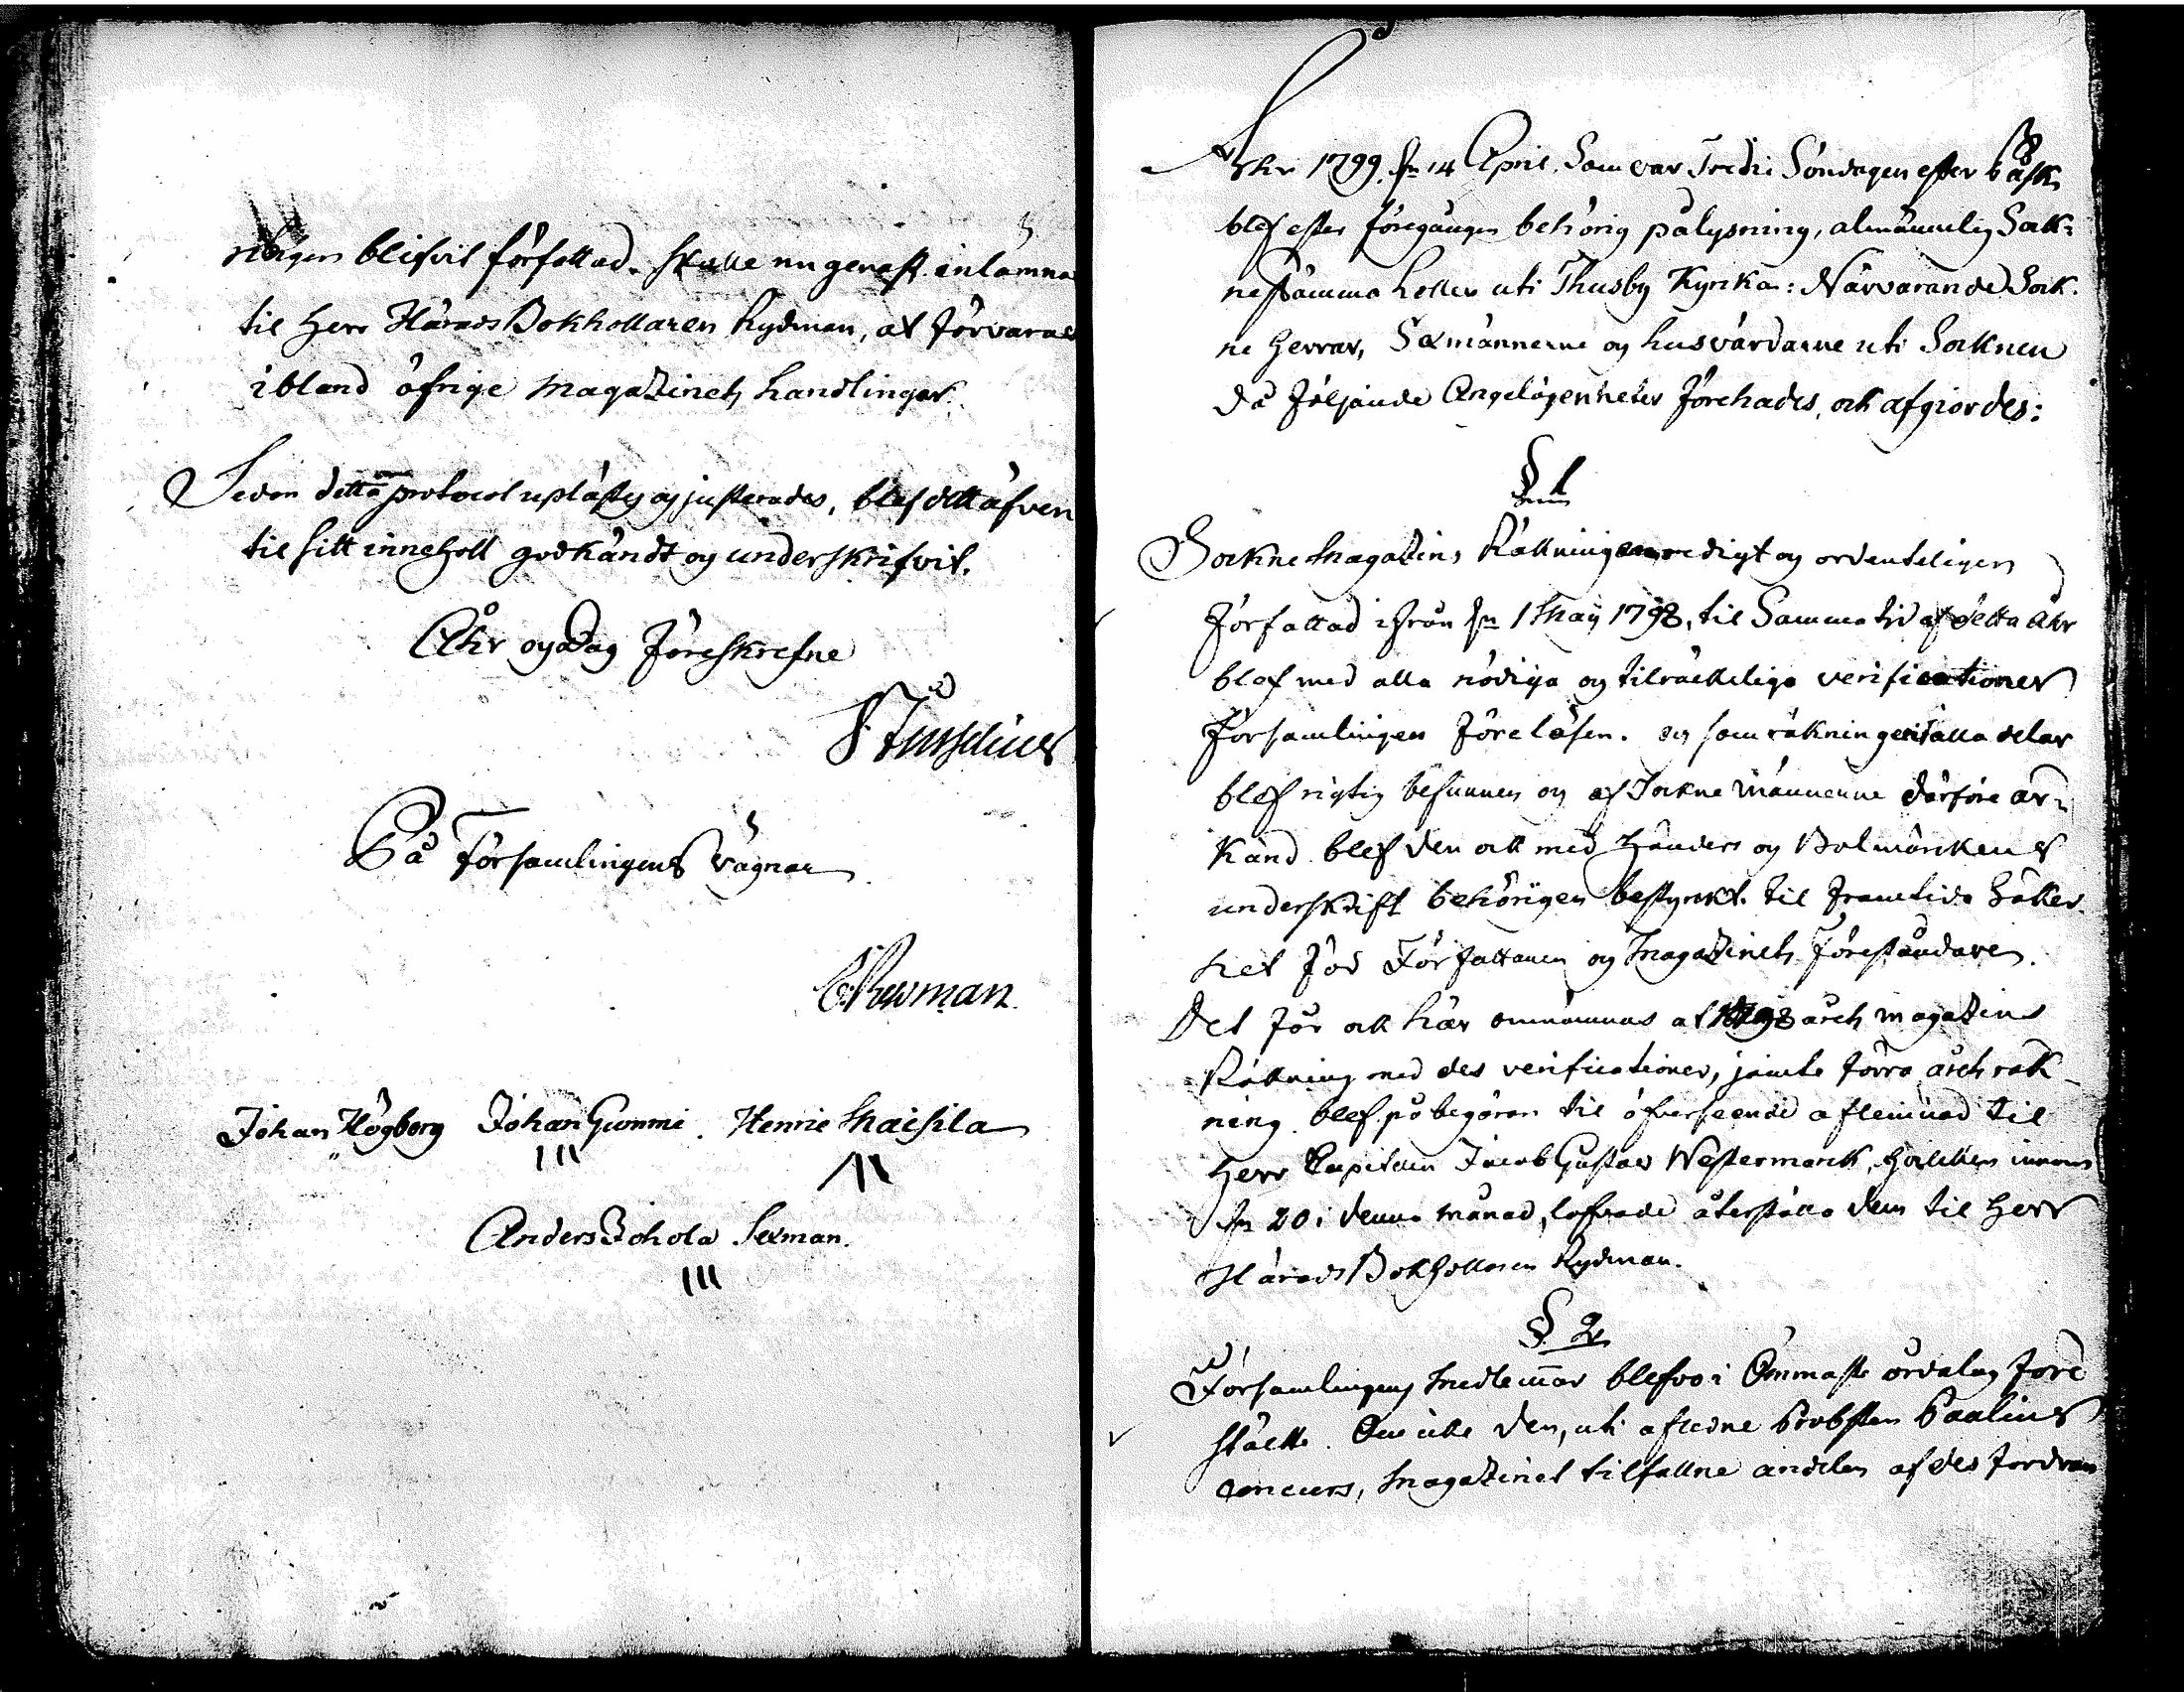 ningen blifvit författad. skulle nu genast inlämnas
til Herr HäradsBokhollaren Rydman, at förvaras
ibland öfrige Magazinets handlingar.
Sedan detta protocol uplästes og justerades, blef dett äfven
til sitt innehold godkändt og underskrifvit.
Åhr og Dag föreskrefne
På Församlingens vägnar
Johan Högborg Johan Gummi. Henric Maisila
Anders Johola Sexman.
Åhr 1799 den 14 April. Som var Tredie Söndagen efter Påsk,
blef efter föregången behörig pålysning, almännelig Sock-
nestämma hollen uti Thusby Kyrka: Närvarande Sock-
ne Herrar, Sexmännerne og husvärdarne uti Socknen
då följande Angelägenheter förehades, och afgiordes:
§ 1
Sockne Magazins Räkningen redigt og ordenteligen
författad ifrån den 1 Maij 1798, til Samma tid af detta åhr
blef med alla nödiga og tilräckeliga verificationer
församlingen föreläsen. og som räkningen i alla delar
blef rigtig befunnen og af Sockne männerne därföre är-
känd blef den ock med Händers og Bolmärkens
underskrift behörigen bestyrkt. til framtida Säker-
het för Författaren og Magazinets Föreståndare.
Det får ock här omnämnas at 1798 årets magazins
Räkning med des verificationer, jämte förra årets räk-
ning blef på begäran til öfverseende aflemnad til
Herr Capitain Jacob Gustav Westermarck, hvilken innom
den 20 i denna månad, lofvade återställa dem til Herr
HäradsBokhollaren Rydman.
§. 2
Församlingens Medlemmar blefvo i Ömmaste ordalag före
stälte. Om icke den, uti afledne Probsten Paalins
concurs, Magazinet tilfallne andelen af des fordran